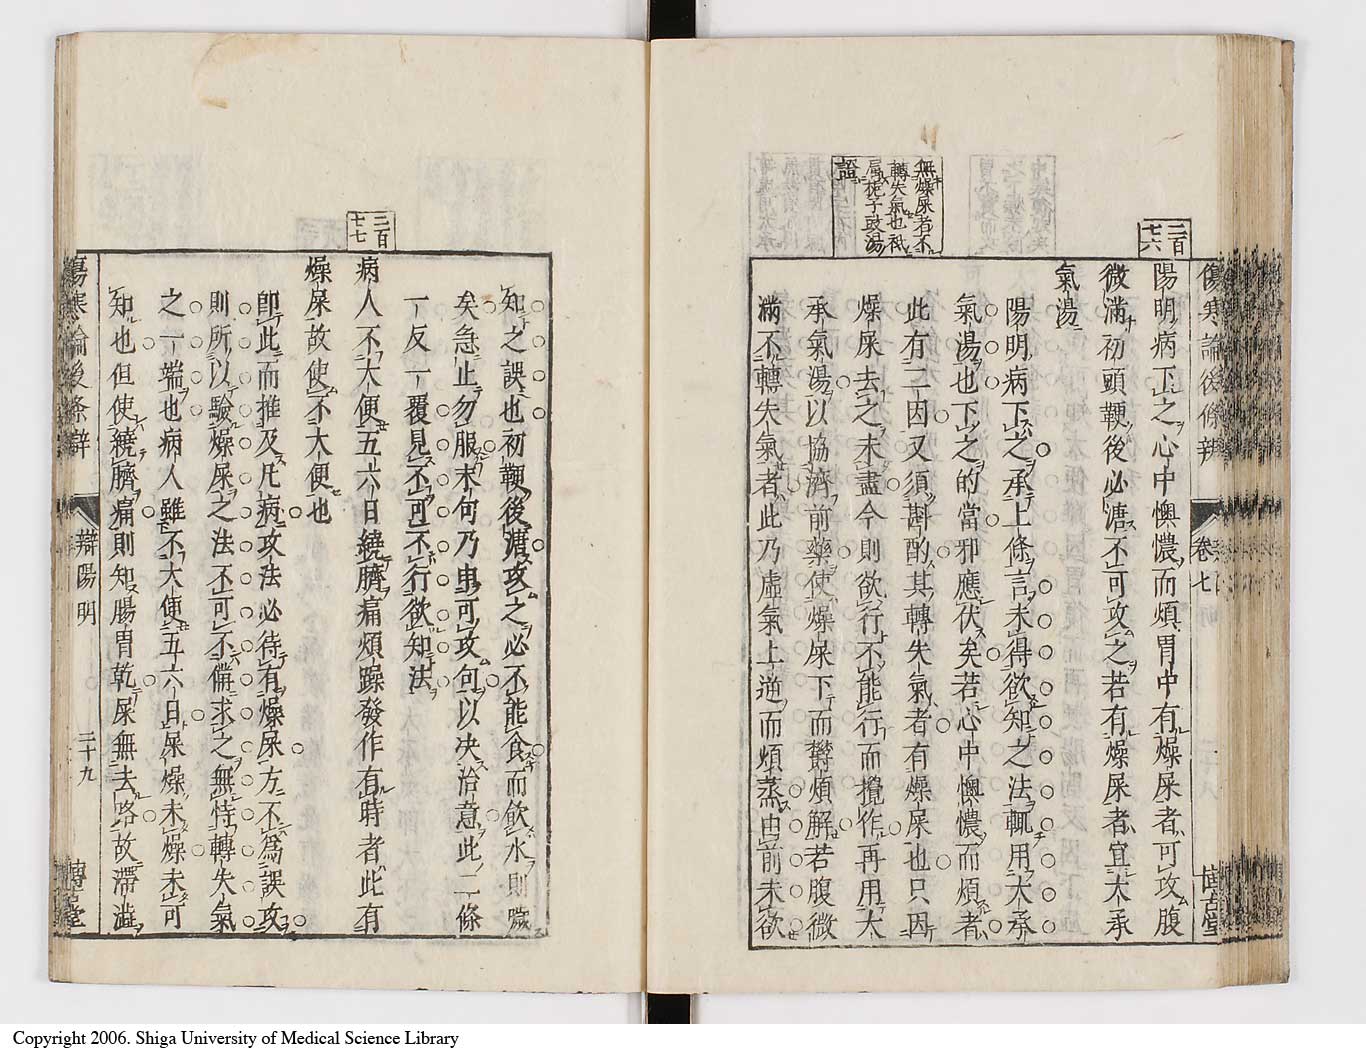 傷寒論後條辨
卷七
二百七十六
陽明病下之心中懊憹而煩胃中有燥屎者可攻腹
微滿初頭鞕後必溏不可攻之若有燥屎者宜大承
氣湯
無燥屎者不
轉失氣也衹
屬梔子豉湯
證
陽明病下之承上條言未得欲知之法輒用大承
氣湯也下之的當邪應伏矣若心中懊憹而煩者
此有二因又須斟酌其轉失氣者有燥屎也只因
燥屎去之未盡今則欲行不能行而攪作再用大
承氣湯以協濟前藥使燥屎下而鬱煩解若腹微
滿不轉失氣者此乃虛氣上逆而煩蒸由前未欲
知之誤也初鞕後溏攻之必不能食而飲水則噦
矣急止勿服未何乃曳可攻何以決治意此二條
一反一覆見不可不行欲知法
二百七十七
病人不大便五六日繞臍痛煩躁發作有時者此有
燥屎故使不大便也
卽此而推及凡病攻法必待有燥屎方不爲誤攻
則所以驗燥屎之法不可不備求之無恃轉失氣
之一端也病人雖不大便五六日屎燥未燥未可
知也但使繞臍痛則知腸胃乾屎無去路故滯澁
傷寒論後條辨
辯陽明
二十九
Copyright 2006. Shiga University of Medical Science Library